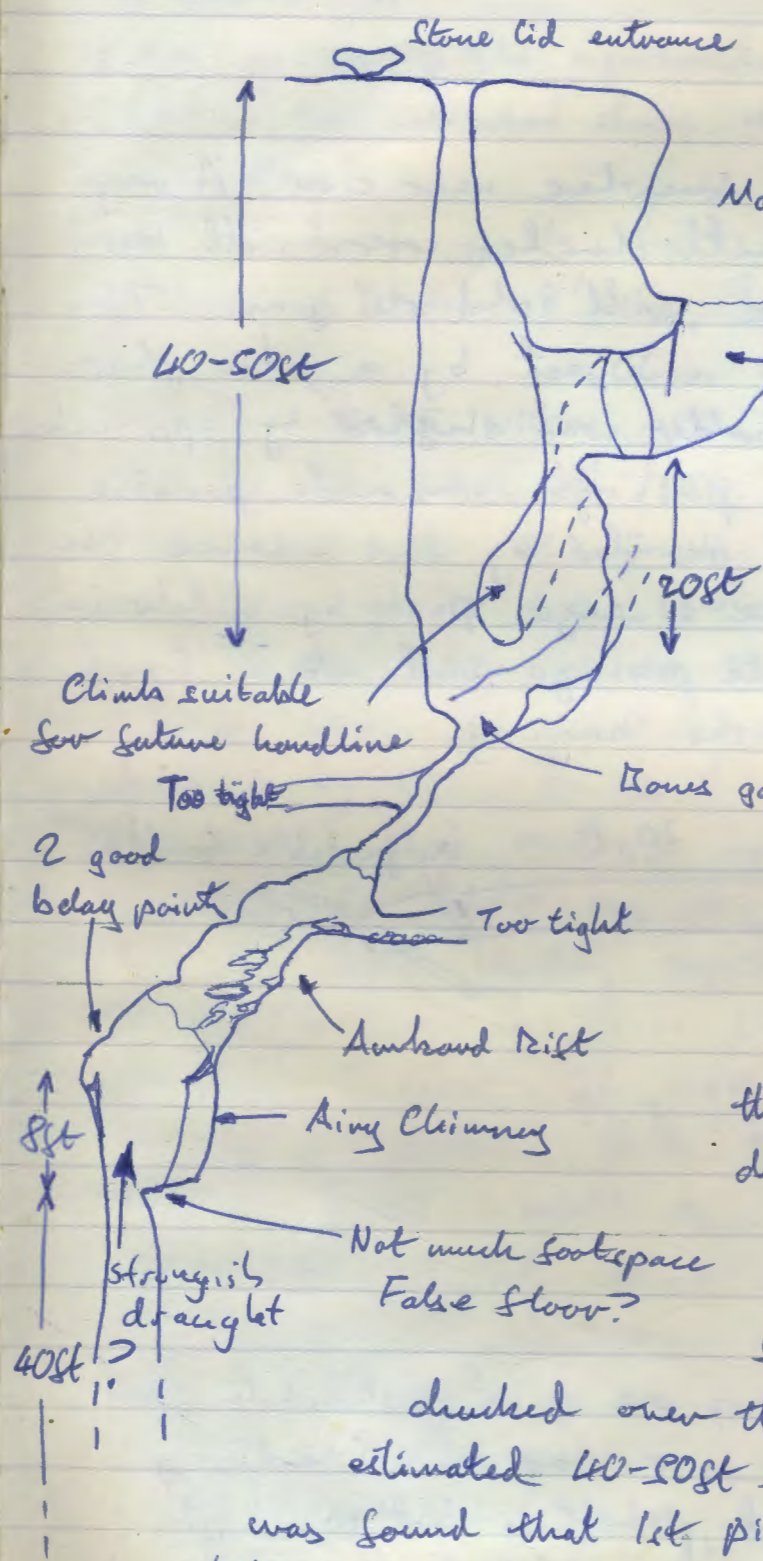 Stone lid entrance
40-50ft
20ft
Climb suitable
for future handline
Bones
Too tight
2 good
belay points
Too tight
Awkward Rift
Airy Chimney
8ft
Not much footspace
False floor?
strongish
draught
40ft ?
chucked over
estimated 40-50ft
was found that 1st